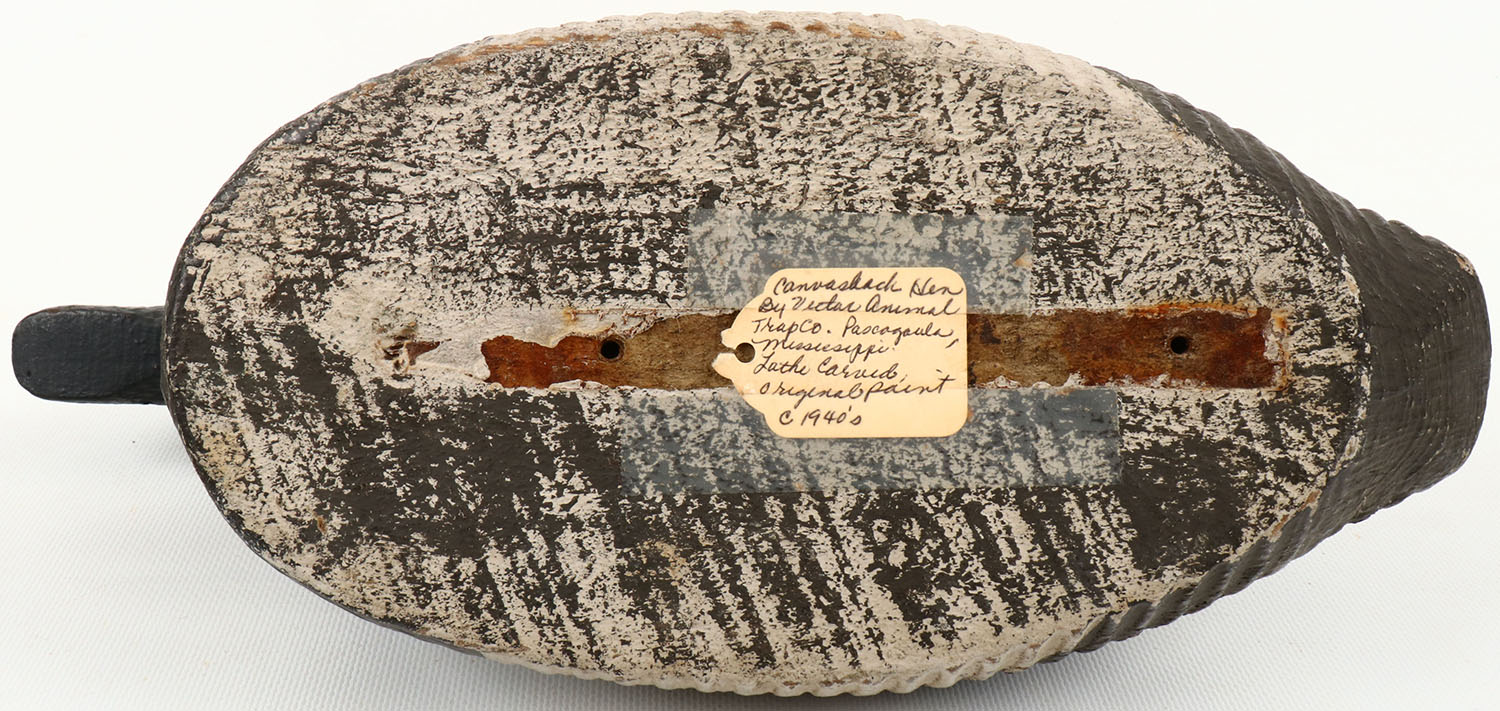 Canvasback Hen
By Victor Animal
Trap Co. Pascagoula,
Mississippi.
Lathe Carved,
Original Paint
C 1940's